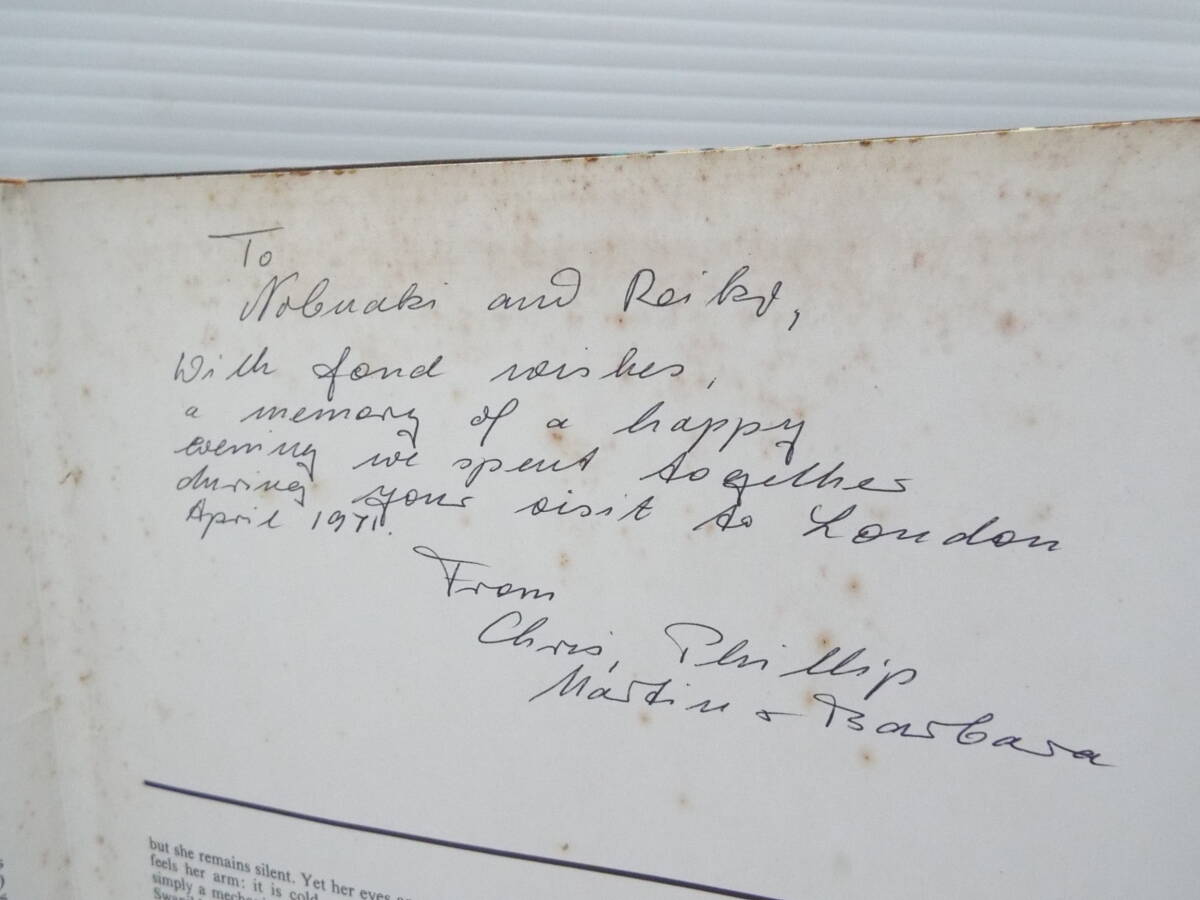 To
Nobuaki and Reiko,
With fond wishes,
a memory of a happy
evening we spent together
during your visit to London
April 1971.
From
Chris, Phillip
Martin + Barbara
but she remains silent. Yet her eyes
feels her arm: it is cold
simply a